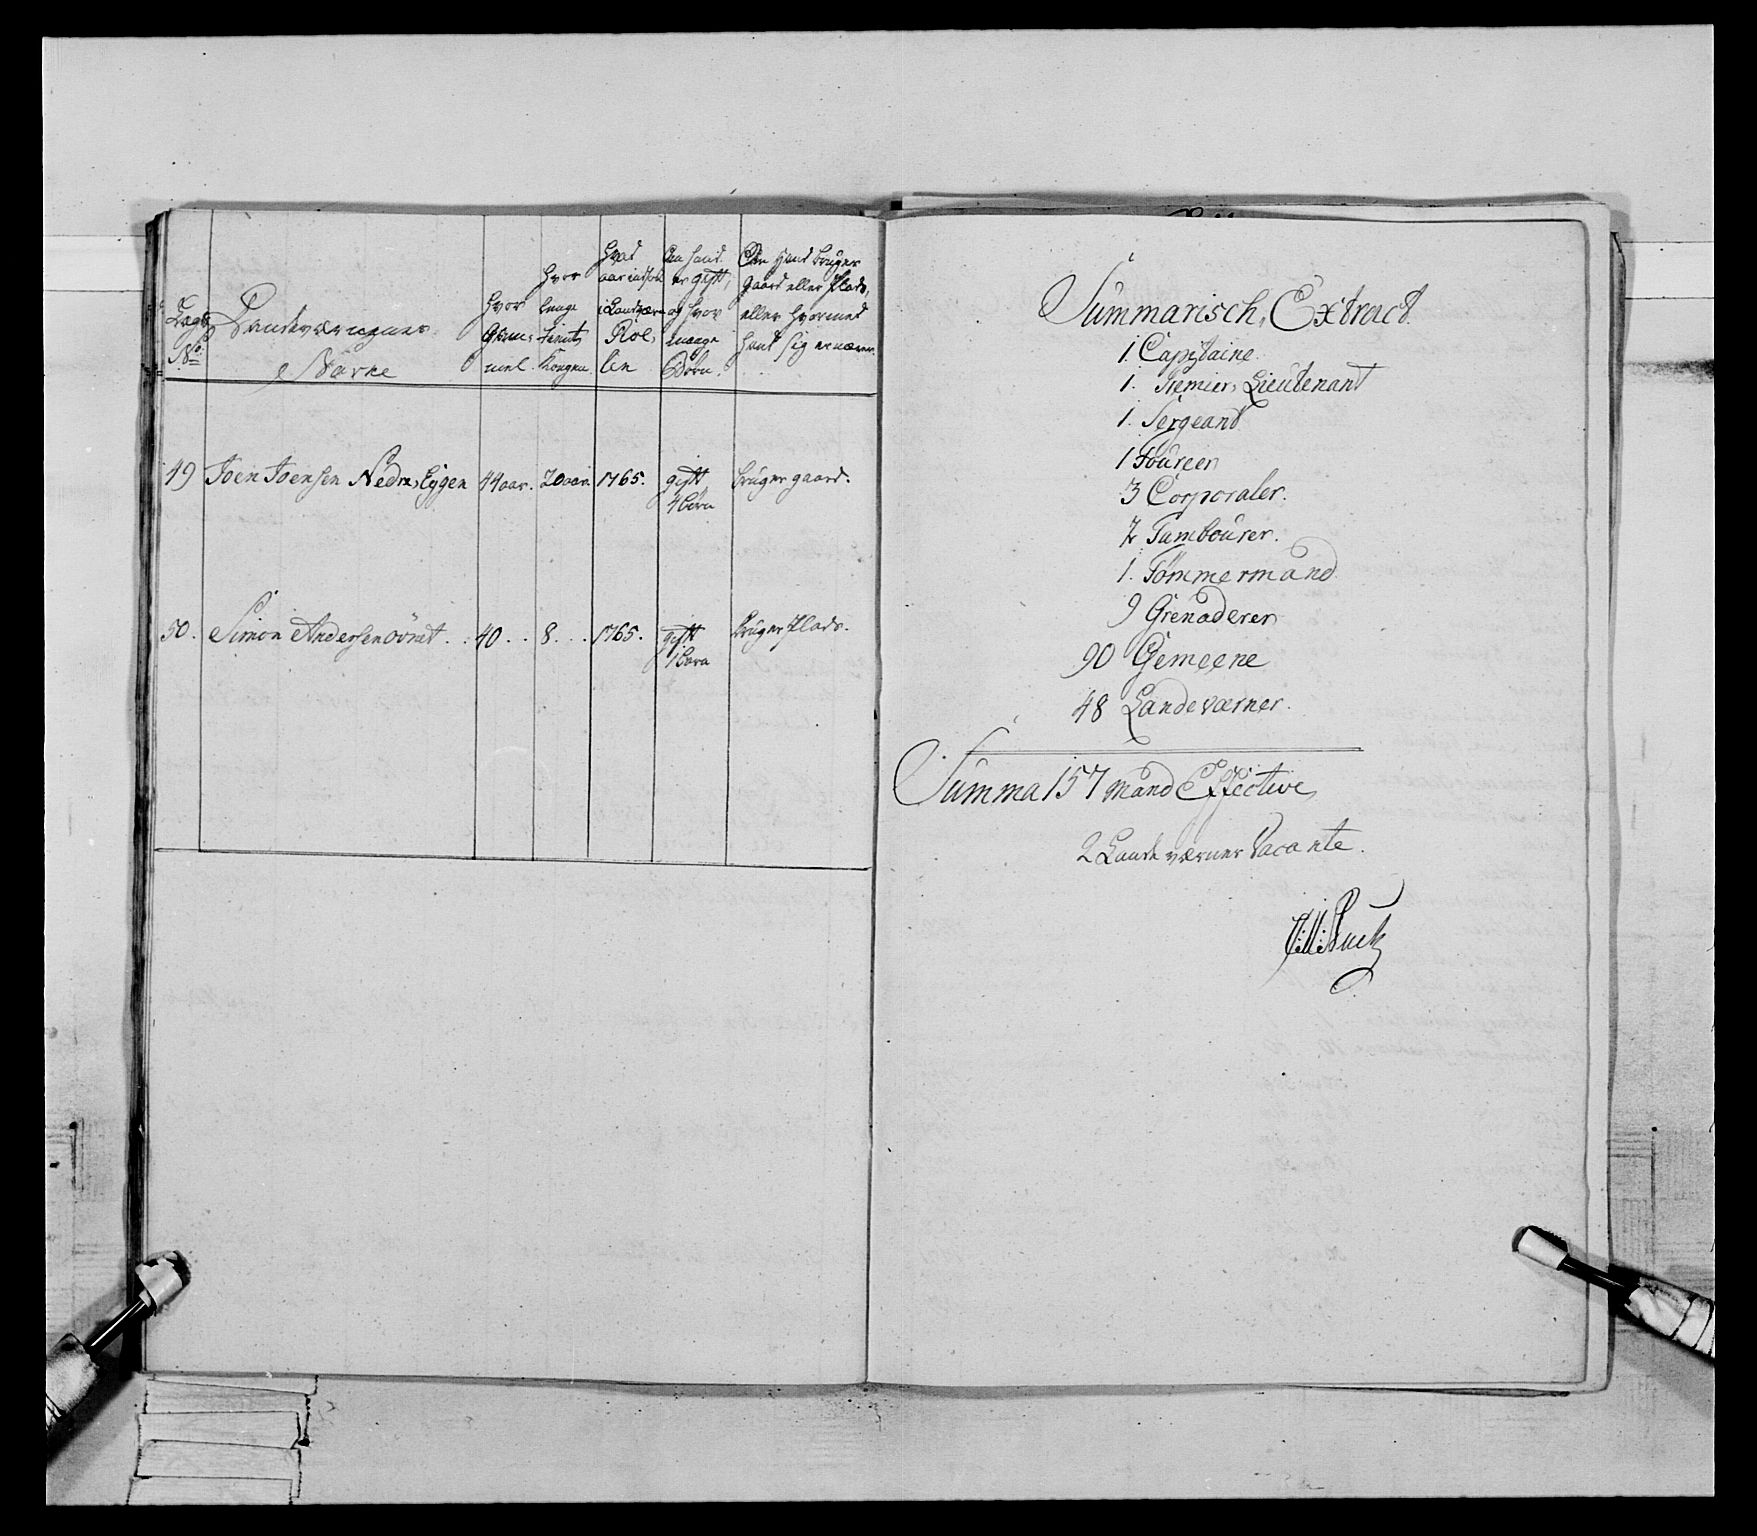 Lægs No.
Landeværnernes Navne
Hvor Gam- mel.
Hvor lenge tient Kongen.
Hvad aar indsat i Landværn Rol- len
Om hand er gift, og hvor mange Børn.
Om Hand bruger gaard eller Plads, eller hvormed hand sig ernærer.
49 Joen Joensen Nedre, 44 aar. 20 aar. 1765. gift 4 børn bruger gaard.
50. Simon Andersen 40 .. 8 ... 1765. gift 1 barn bruger Plads.
Summarisch, Extract
1. Capitaine.
1. Premier, Lieutenant
1. Sergeant
1 Foureer
3 Corporaler.
2 Tambourer.
1. Tømmermand.
9 Grenaderer
90 Gemeene
48 Landeværner.
Summa 157 Mand Effective,
2 Landeværner Vacante.